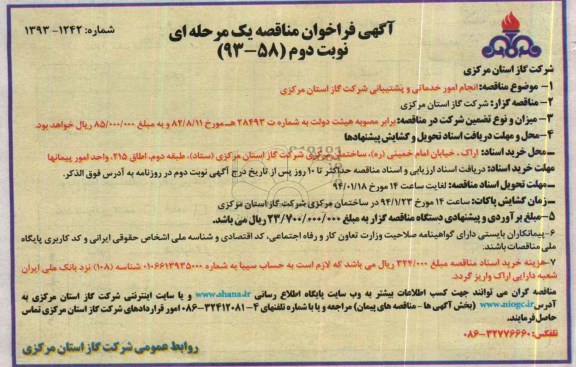 آگهی فراخوان مناقصه یک مرحله ای
نوبت دوم (۵۸-۹۳)
شماره: ۱۲۴۲-۱۳۹۳
شرکت گاز استان مرکزی
۱- موضوع مناقصه: انجام امور خدماتی و پشتیبانی شرکت گاز استان مرکزی
۲- مناقصه گزار: شرکت گاز استان مرکزی
۳- میزان و نوع تضمین شرکت در مناقصه: برابر مصوبه هیئت دولت به شماره ت ۲۸۴۹۳ هـ مورخ ۸۲/۸/۱۱ و به مبلغ ۸۵/۰۰۰/۰۰۰ ریال خواهد بود.
۴- محل و مهلت دریافت اسناد تحویل و گشایش پیشنهادها
ــ محل خرید اسناد: اراک، خیابان امام خمینی (ره)، ساختمان مرکزی شرکت گاز استان مرکزی (ستاد)، طبقه دوم، اطاق ۲۱۵، واحد امور پیمانها
مهلت خرید اسناد: دریافت اسناد ارزیابی و اسناد مناقصه حداکثر تا ۱۰ روز پس از تاریخ درج آگهی نوبت دوم در روزنامه به آدرس فوق الذکر.
ــ مهلت تحویل اسناد مناقصه: لغایت ساعت ۱۴ مورخ ۹۴/۰۱/۱۸
ــ زمان گشایش پاکات: ساعت ۱۴ مورخ ۹۴/۱/۲۳ در ساختمان مرکزی شرکت گاز استان مرکزی
۵- مبلغ برآوردی و پیشنهادی دستگاه مناقصه گزار به مبلغ ۲۳/۷۰۰/۰۰۰/۰۰۰ ریال می باشد.
۶- پیمانکاران بایستی دارای گواهینامه صلاحیت وزارت تعاون کار و رفاه اجتماعی، کد اقتصادی و شناسه ملی اشخاص حقوقی ایرانی و کد کاربری پایگاه
ملی مناقصات باشند.
۷- هزینه خرید اسناد مناقصه مبلغ ۳۲۴/۰۰۰ ریال می باشد که لازم است به حساب سیبا به شماره ۰۱۰۶۶۱۳۹۳۵۰۰۰ شناسه (۱۰۸) نزد بانک ملی ایران
شعبه دارایی اراک واریز گردد.
مناقصه گران می توانند جهت کسب اطلاعات بیشتر به وب سایت پایگاه اطلاع رسانی www.shana.ir و یا سایت اینترنتی شرکت گاز استان مرکزی به
آدرس www.niogc.ir (بخش آگهی ها - مناقصه های پیمان) مراجعه و یا با شماره تلفنهای ۴-۳۲۴۱۲۰۸۱-۰۸۶ امور قراردادهای شرکت گاز استان مرکزی تماس
حاصل فرمایند.
تلفکس: ۳۲۷۷۶۶۶۰-۰۸۶
روابط عمومی شرکت گاز استان مرکزی